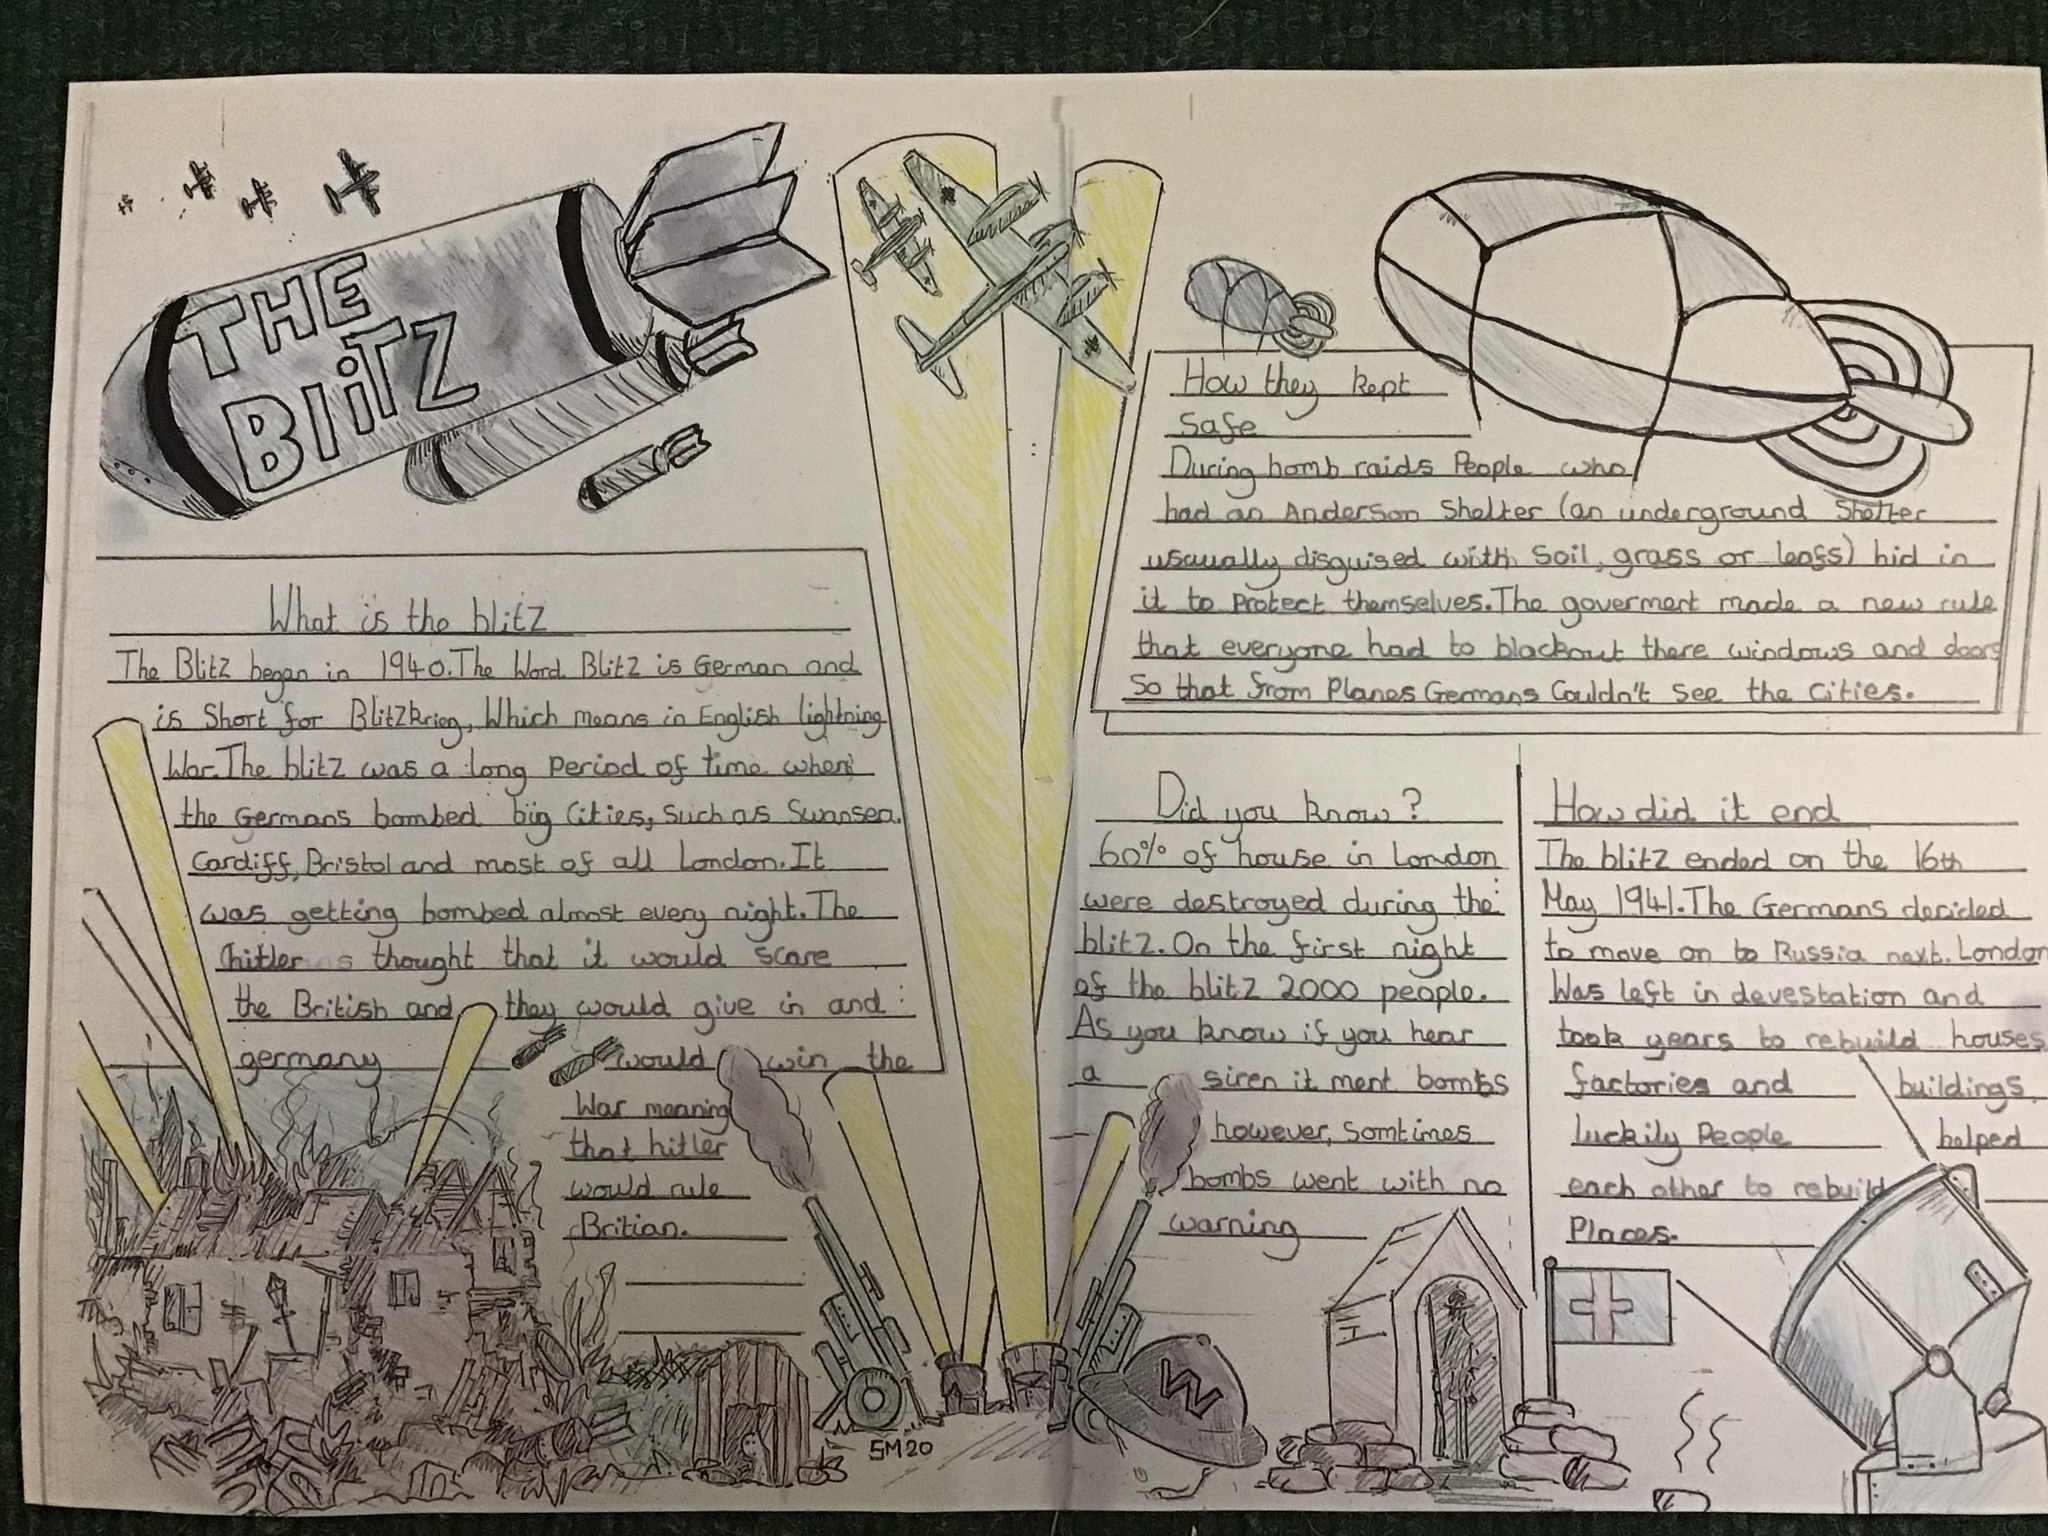 THE
BLiTZ
What is the blitz
The Blitz began in 1940. The Word Blitz is German and
is Short for Blitzkrieg, Which means in English lightning
War. The blitz was a long Period of time when
the Germans bombed big Cities, Such as Swansea.
Cardiff, Bristol and most of all London. It
was getting bombed almost every night. The
hitler thought that it would scare
the British and they would give in and
germany would win the
War meaning
that hitler
would rule
Britian.
How they kept
Safe
During bomb raids People who
had an Anderson Shelter (an underground Shelter
usaually disguised with Soil, grass or leafs) hid in
it to Protect themselves. The goverment made a new rule
that everyone had to blackout there windows and doors
So that from Planes Germans Couldn't See the Cities.
Did you know?
60% of house in London
were destroyed during the
blitz. On the first night
of the blitz 2000 people.
As you know if you hear
a siren it ment bombs
however, Somtimes
bombs went with no
warning
How did it end
The blitz ended on the 16th
May 1941. The Germans decided
to move on to Russia next. London
Was left in devestation and
took years to rebuild houses
factories and buildings,
luckily People helped
each other to rebuild
Places.
W
SM20